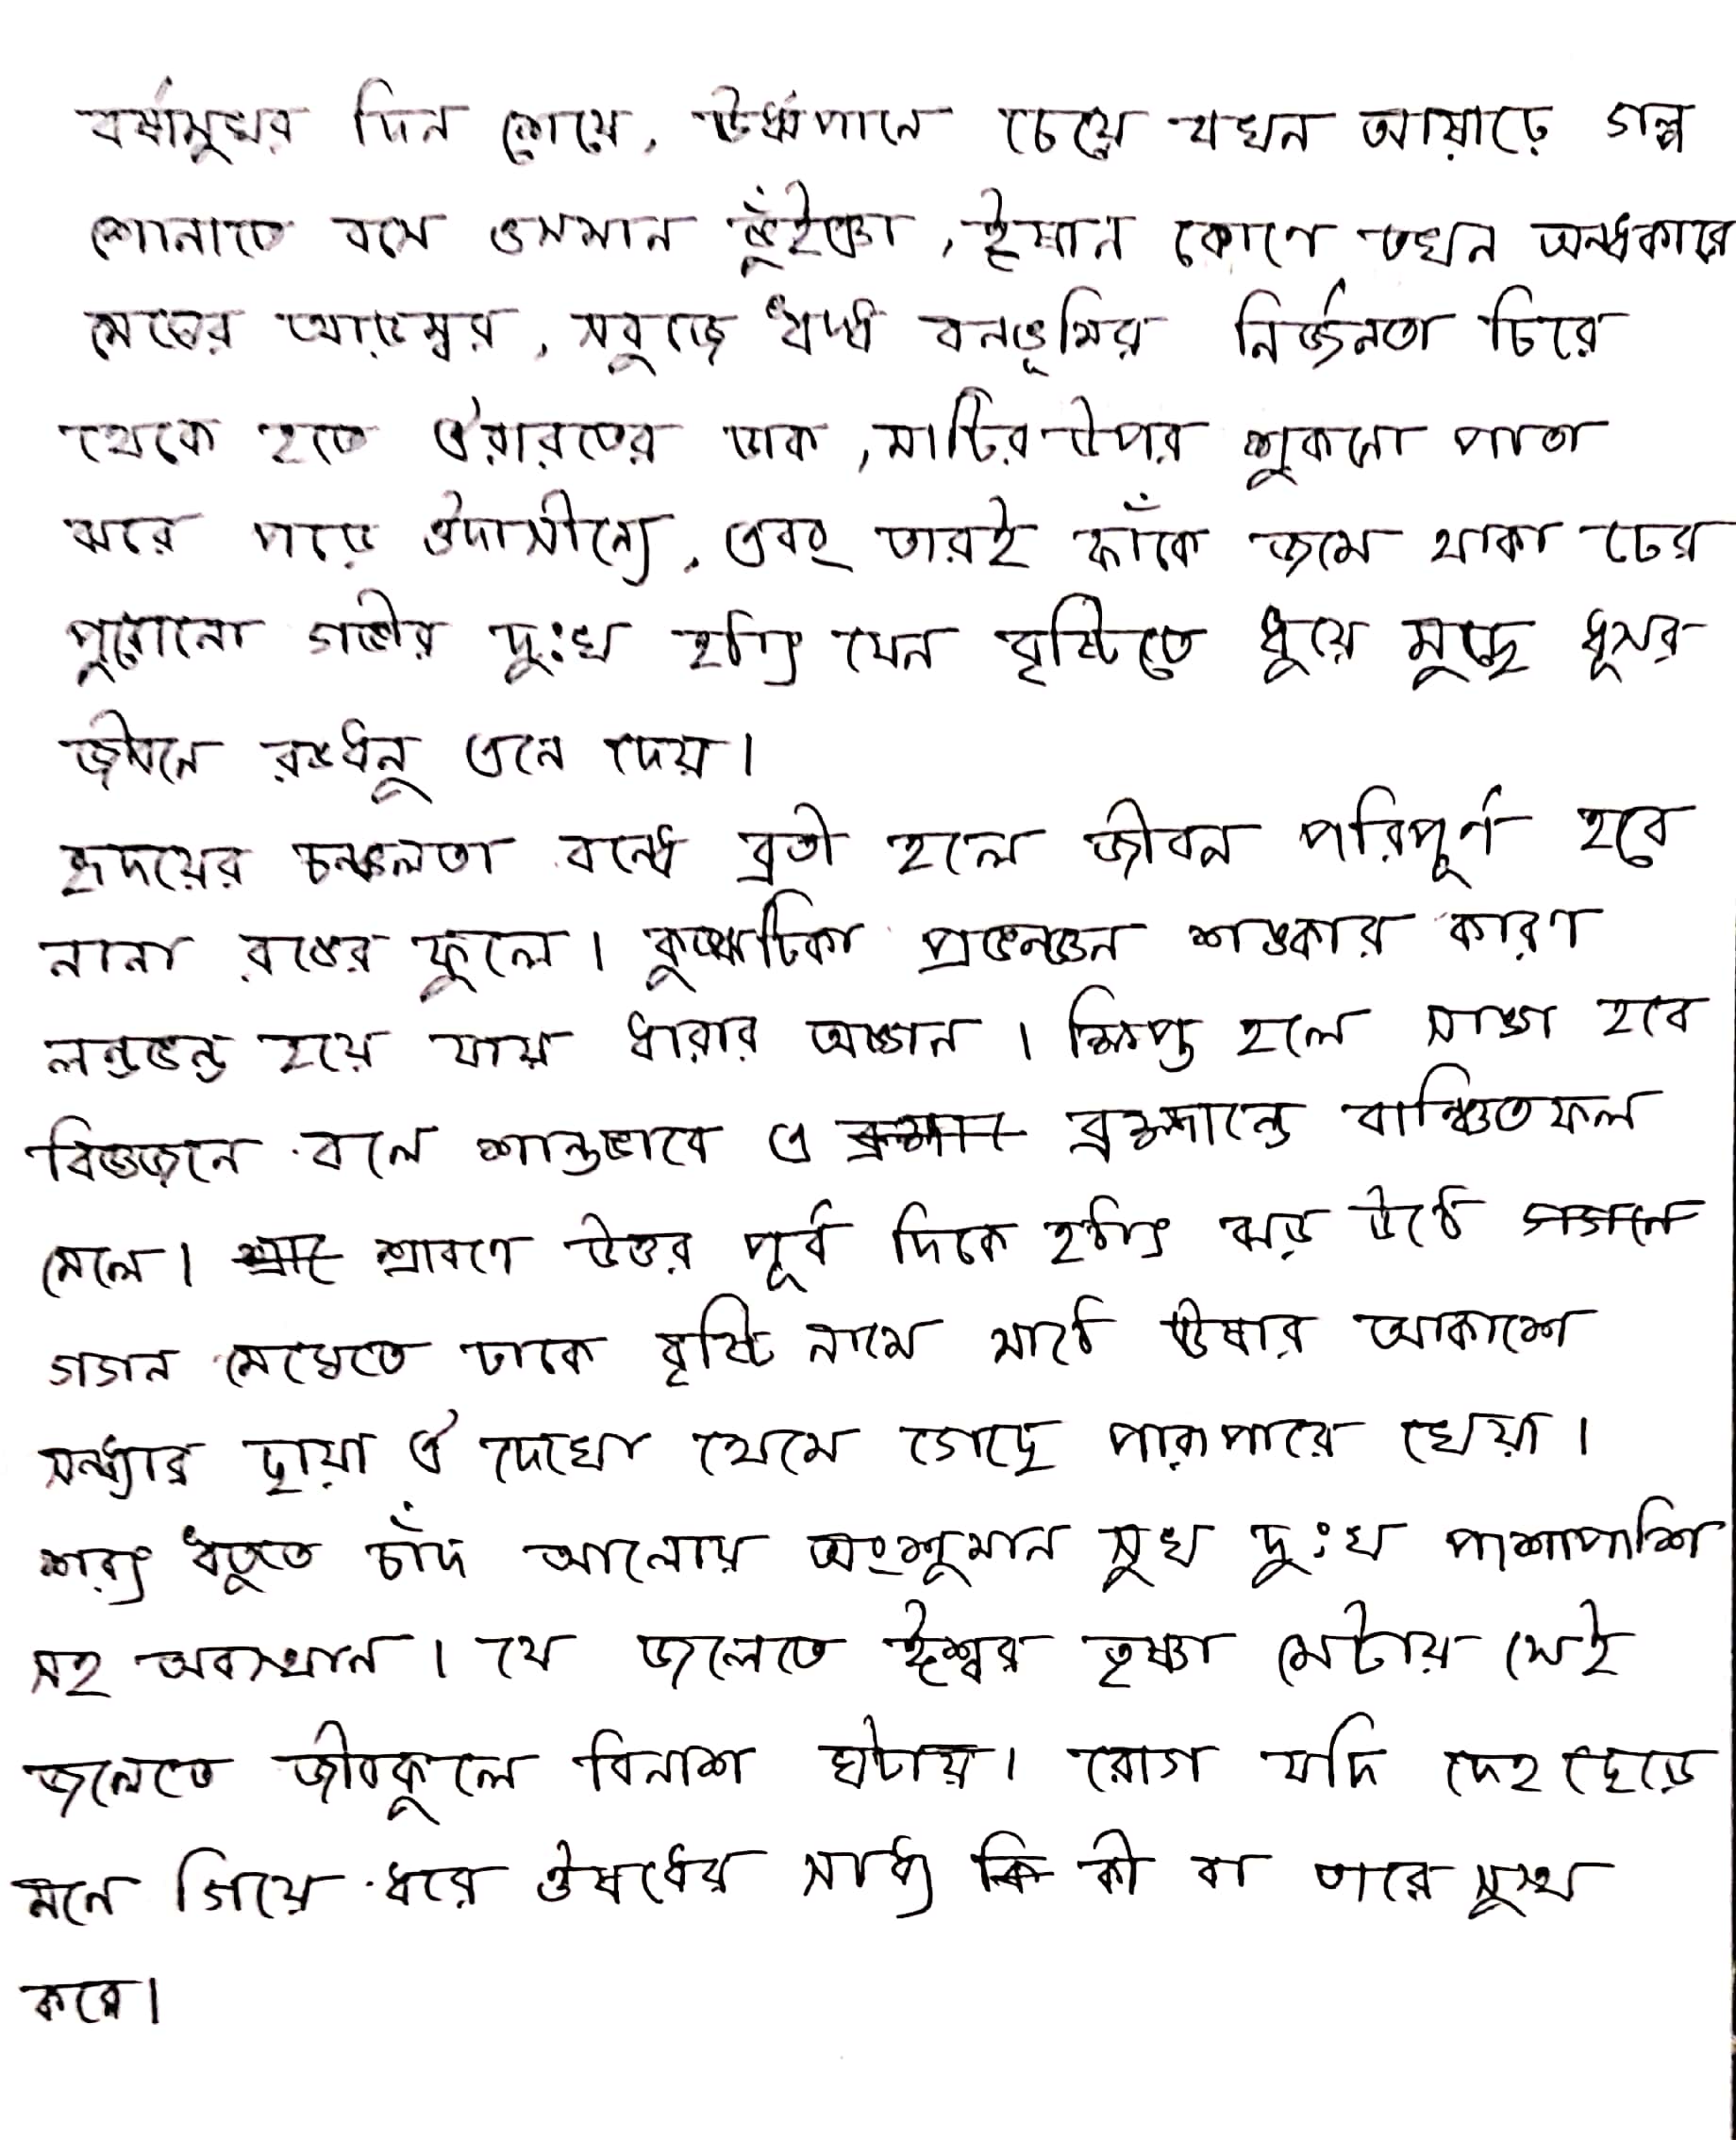 বর্ষামুখর দিন শেষে, উর্ধ্বপানে চেয়ে যখন আষাঢ়ে গল্প
শোনাতে বসে ওসমান ভুঁইঞা, ঈষান কোণে তখন অন্ধকার
মেঘের আড়ম্বর, সবুজে ঋদ্ধ বনভূমির নির্জনতা চিরে
থেকে হতে ঐরাবতের ডাক, মাটির উপর শুকনো পাতা
ঝরে পড়ে ঔদাসীন্যে, এবং তারই ফাঁকে জমে থাকা ঢের
পুরোনো গভীর দুঃখ হঠাৎ যেন বৃষ্টিতে ধুয়ে মুছে ধূসর
জীবনে রঙধনু এনে দেয়।
হৃদয়ের চঞ্চলতা বন্ধে ব্রতী হলে জীবন পরিপূর্ণ হবে
নানা রঙের ফুলে। কুজ্ঝটিকা প্রভঞ্জন শঙকার কারণ
লন্ডভন্ড হয়ে যায় ধারার অঙ্গন। ক্ষিপ্ত হলে সাঙ্গ হবে
বিজ্ঞজনে বলে শান্তভাবে এ ব্রহ্মান্ডে বাঞ্ছিতফল
মেলে। শ্রাবণে উত্তর পূর্ব দিকে হঠাৎ ঝড় উঠে গগনে
গগন মেঘেতে ঢাকে বৃষ্টি নামে মাঠে ঊষার আকাশে
সন্ধ্যার ছায়া ঐ দেখো থেমে গেছে পারাপারে খেয়া।
শরৎ ঋতুতে চাঁদ আলোয় অংশুমান সুখ দুঃখ পাশাপাশি
সহ অবস্থান। যে জলেতে ঈশ্বর তৃষ্ণা মেটায় সেই
জলেতে জীবকূলে বিনাশ ঘটায়। রোগ যদি দেহ ছেড়ে
মনে গিয়ে ধরে ঔষধের সাধ্য কী বা তারে সুস্থ
করে।